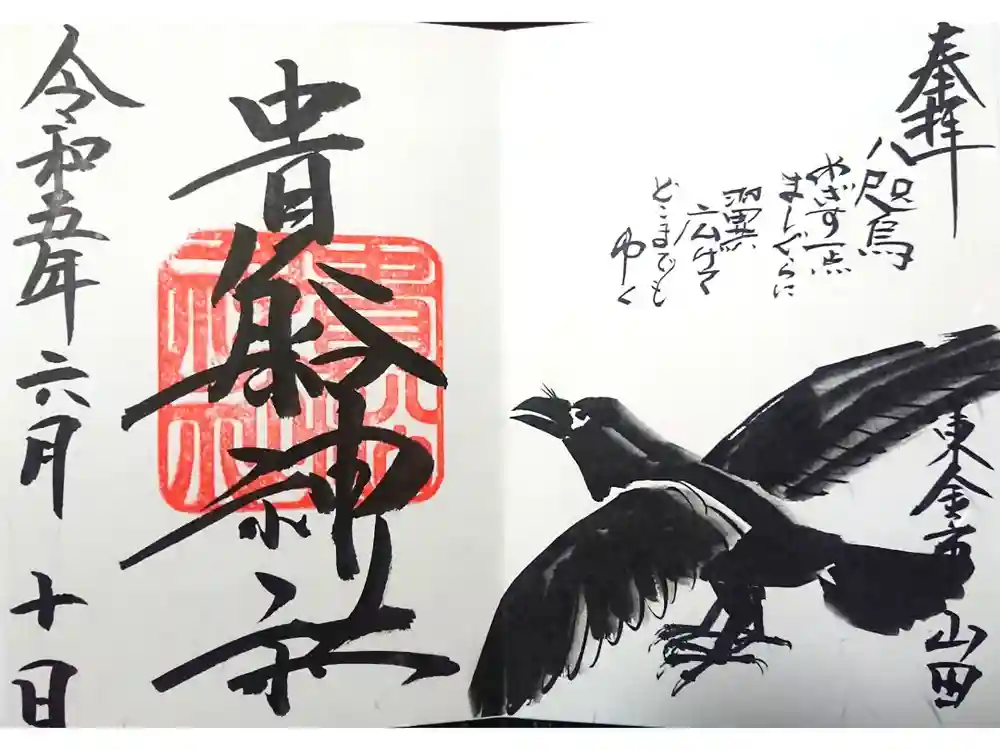 奉拝
八咫烏
めざす一点
ましぐらに
翼
広げて
どこまでも
ゆく
東金市
山田
貴船神社
令和五年六月十日